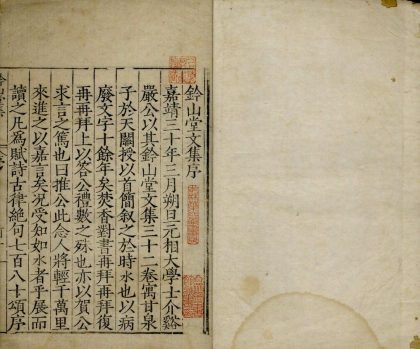 鈐山堂文集序
嘉靖三十年三月朔旦元相大學士介谿
嚴公以其鈐山堂文集三十二卷寓甘泉
子於天關授以首簡叙之於時水也以病
廢文字十餘年矣焚香對書再拜再拜復
再再拜上以答公禮數之殊也亦以賀公
求言之篤也曰推公此念人將輕千萬里
來進之以嘉言矣況受知如水者乎展而
讀之凡為賦詩古律絕句七百八十頌序